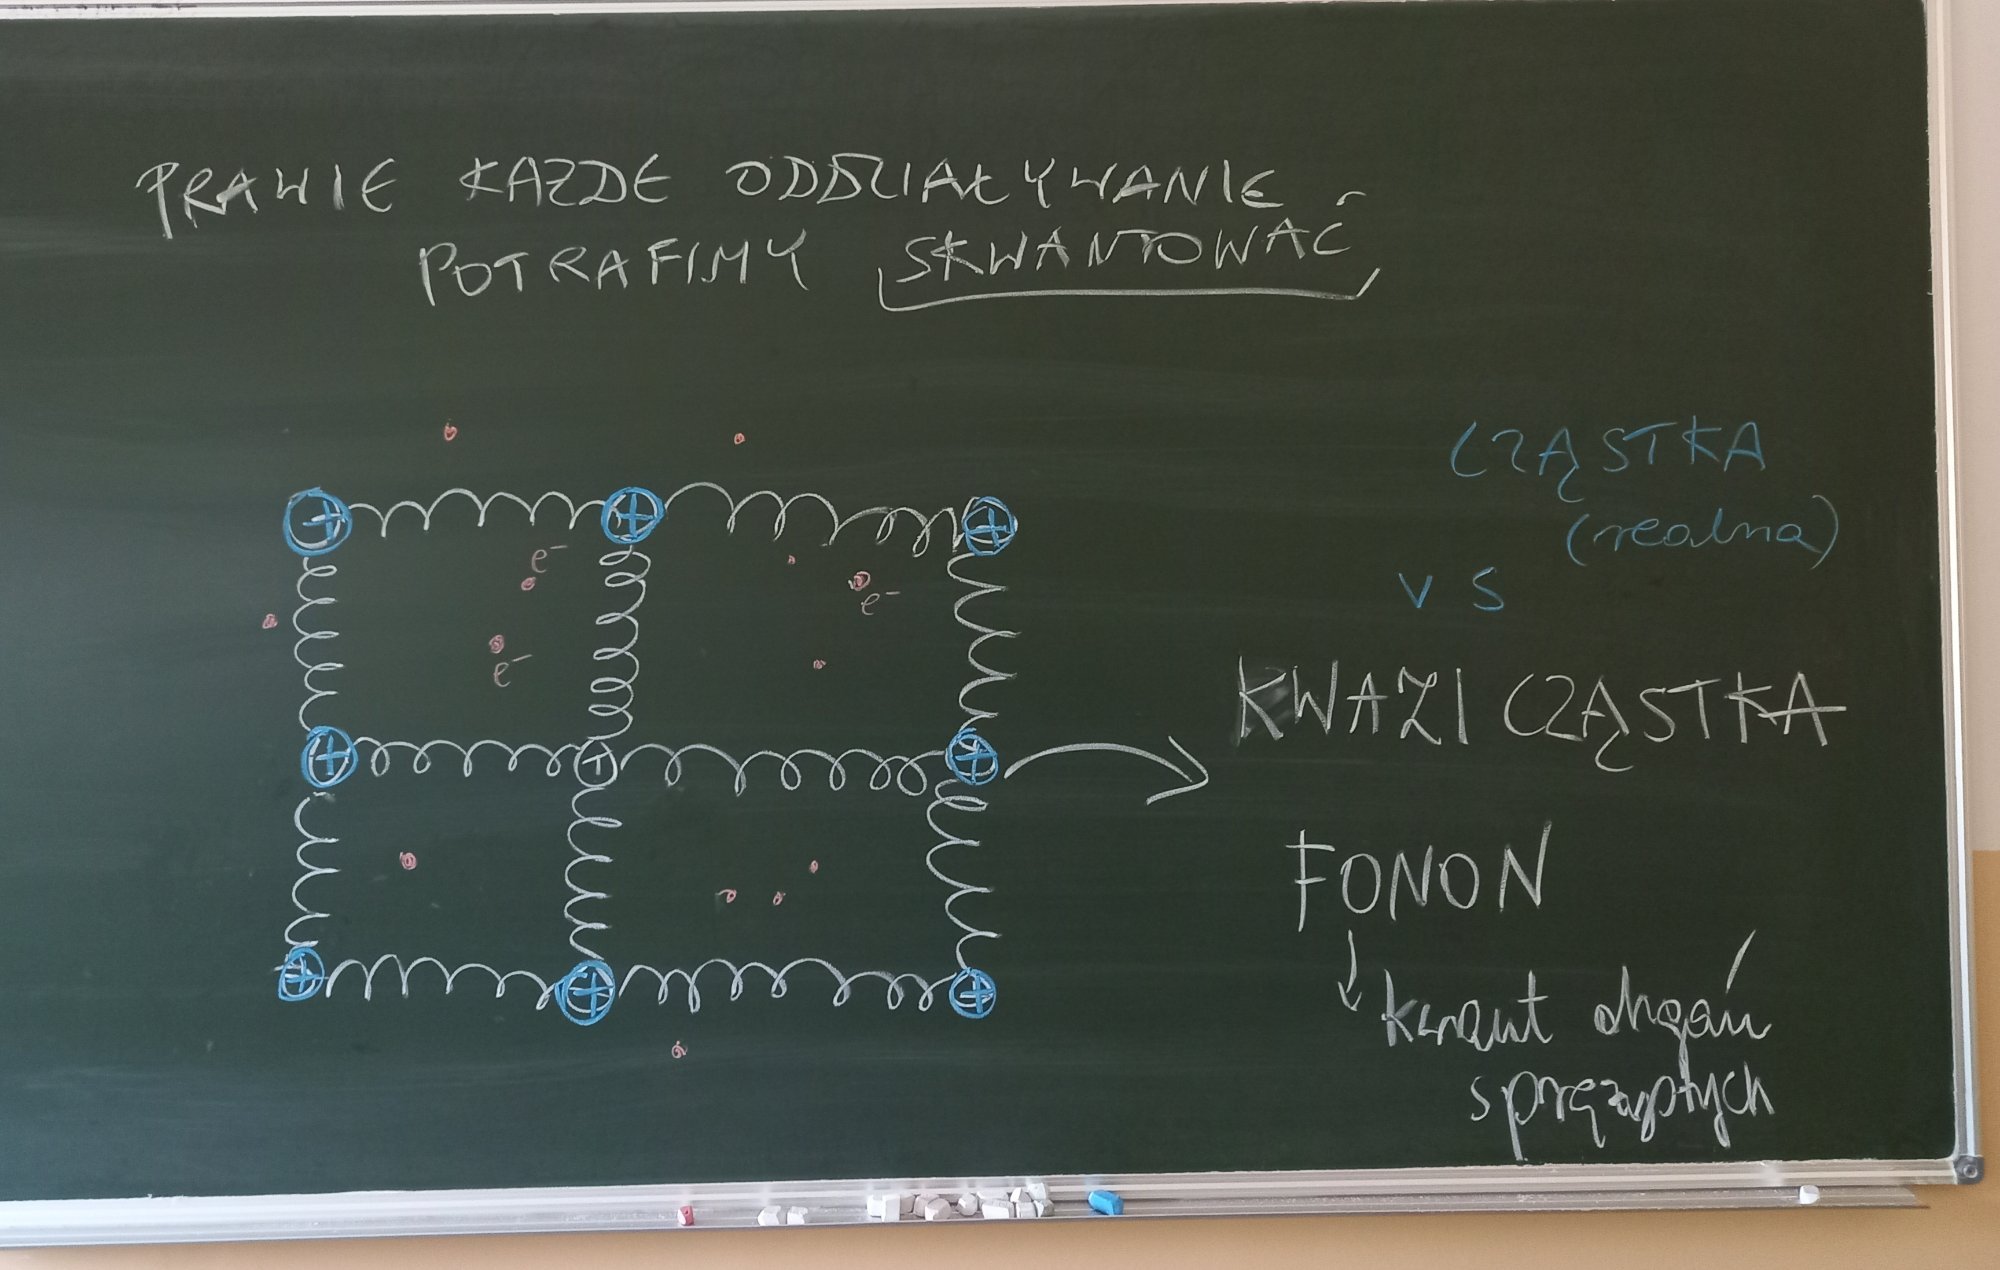 PRAWIE KAŻDE ODDZIAŁYWANIE
POTRAFIMY SKWANTOWAĆ
+ + +
e⁻
e⁻
e⁻
+ + +
+ + +
CZĄSTKA
(realna)
VS
KWAZICZĄSTKA
FONON
kwant drgań
sprężystych